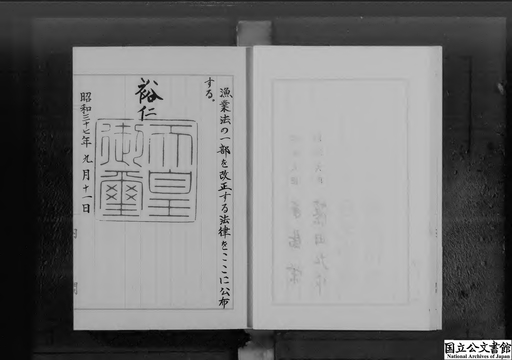 漁業法の一部を改正する法律をここに公布
する。
裕仁
天皇
御璽
昭和三十七年九月十一日
国立公文書館
National Archives of Japan